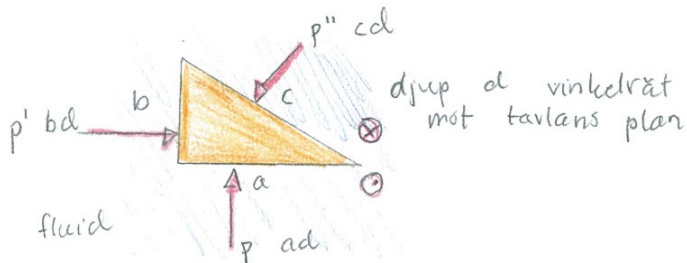 p" cd
djup d vinkelrät
mot tavlans plan
b
c
p' bd
a
fluid
p ad